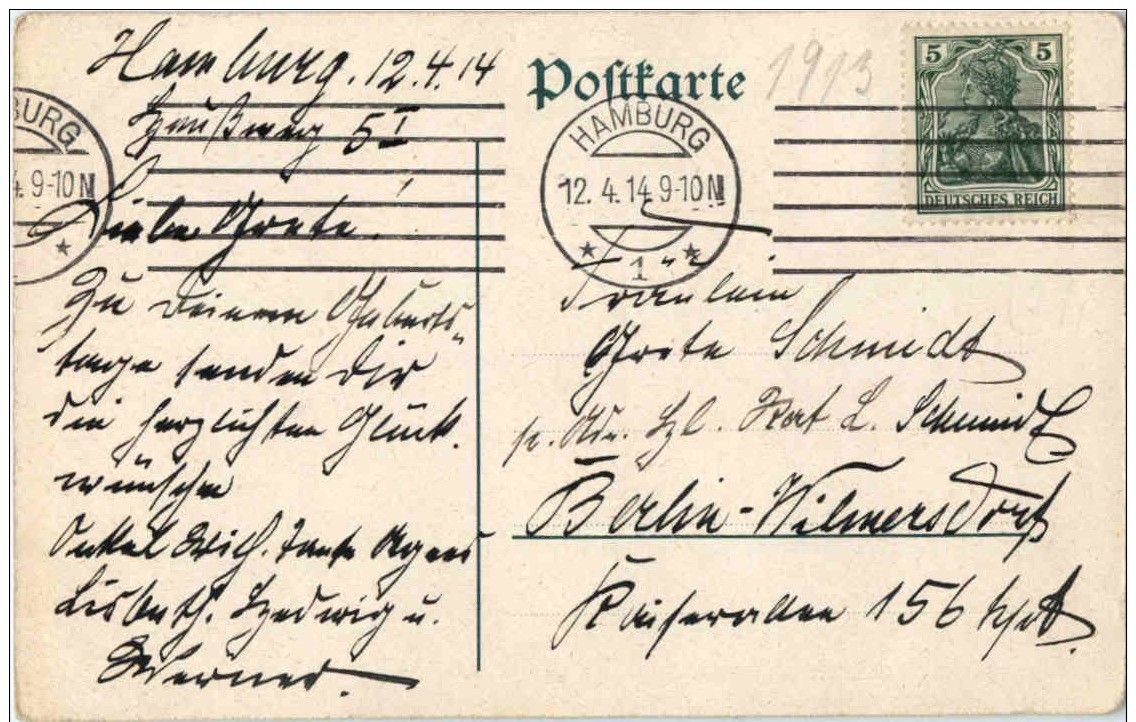 Hamburg. 12.4.14
Haußweg 5 I
Liebe Grete!
Zu Deinem Geburts-
tage senden Dir
die herzlichsten Glück-
wünsche
Onkel Wilh. Tante Agnes
Lisbeth. Hedwig u.
Werner.
Postkarte
1913
BURG
4. 9-10 N
HAMBURG
12. 4. 14. 9-10 N
1
5 5
DEUTSCHES REICH
Fräulein
Grete Schmidt
p. Adr. Rat L. Schmidt
Berlin-Wilmersdorf
Kaiserallee 156